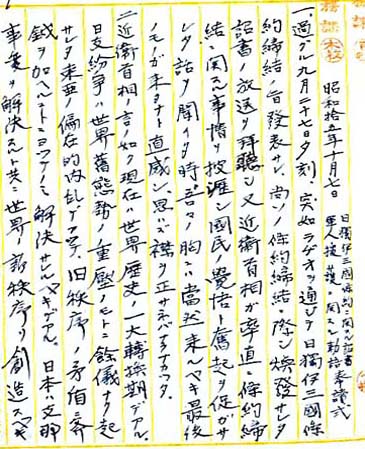 昭和拾五年十月七日
日獨伊三國條約ニ関スル詔書
軍人援護ニ関スル勅語 奉読式
一、過グル九月二十七日夕刻、突如ラヂオヲ通ジテ日獨伊三國條
約締結ノ旨発表サレ、尚ソノ條約締結ニ際シ煥發サレタ
詔書ノ放送ヲ拝聴シ又近衛首相ガ率直ニ條約締
結ニ関スル事情ヲ披瀝シ國民ノ覺悟ト奮起ヲ促ガサ
レタ話ヲ聞イタ時吾々ノ胸ニ當然来ルベキ最後
ノモノガ来タナト直感シ、思ハズ襟ヲ正サネバナラナカッタ。
二、近衛首相ノ言ノ如ク現在ハ世界歴史ノ一大轉換期デアル。
日支紛争ハ世界舊態勢ノ重壓ノモトニ餘儀ナク起
サレタ東亜ノ偏在的内乱デアッテ、旧秩序ノ矛盾ニ斉
鉞ヲ加ヘルコトニヨッテノミ解決サルベキデアル。日本ハ支那
事変ヲ解決スルト共ニ世界ノ新秩序ヲ創造スベキ